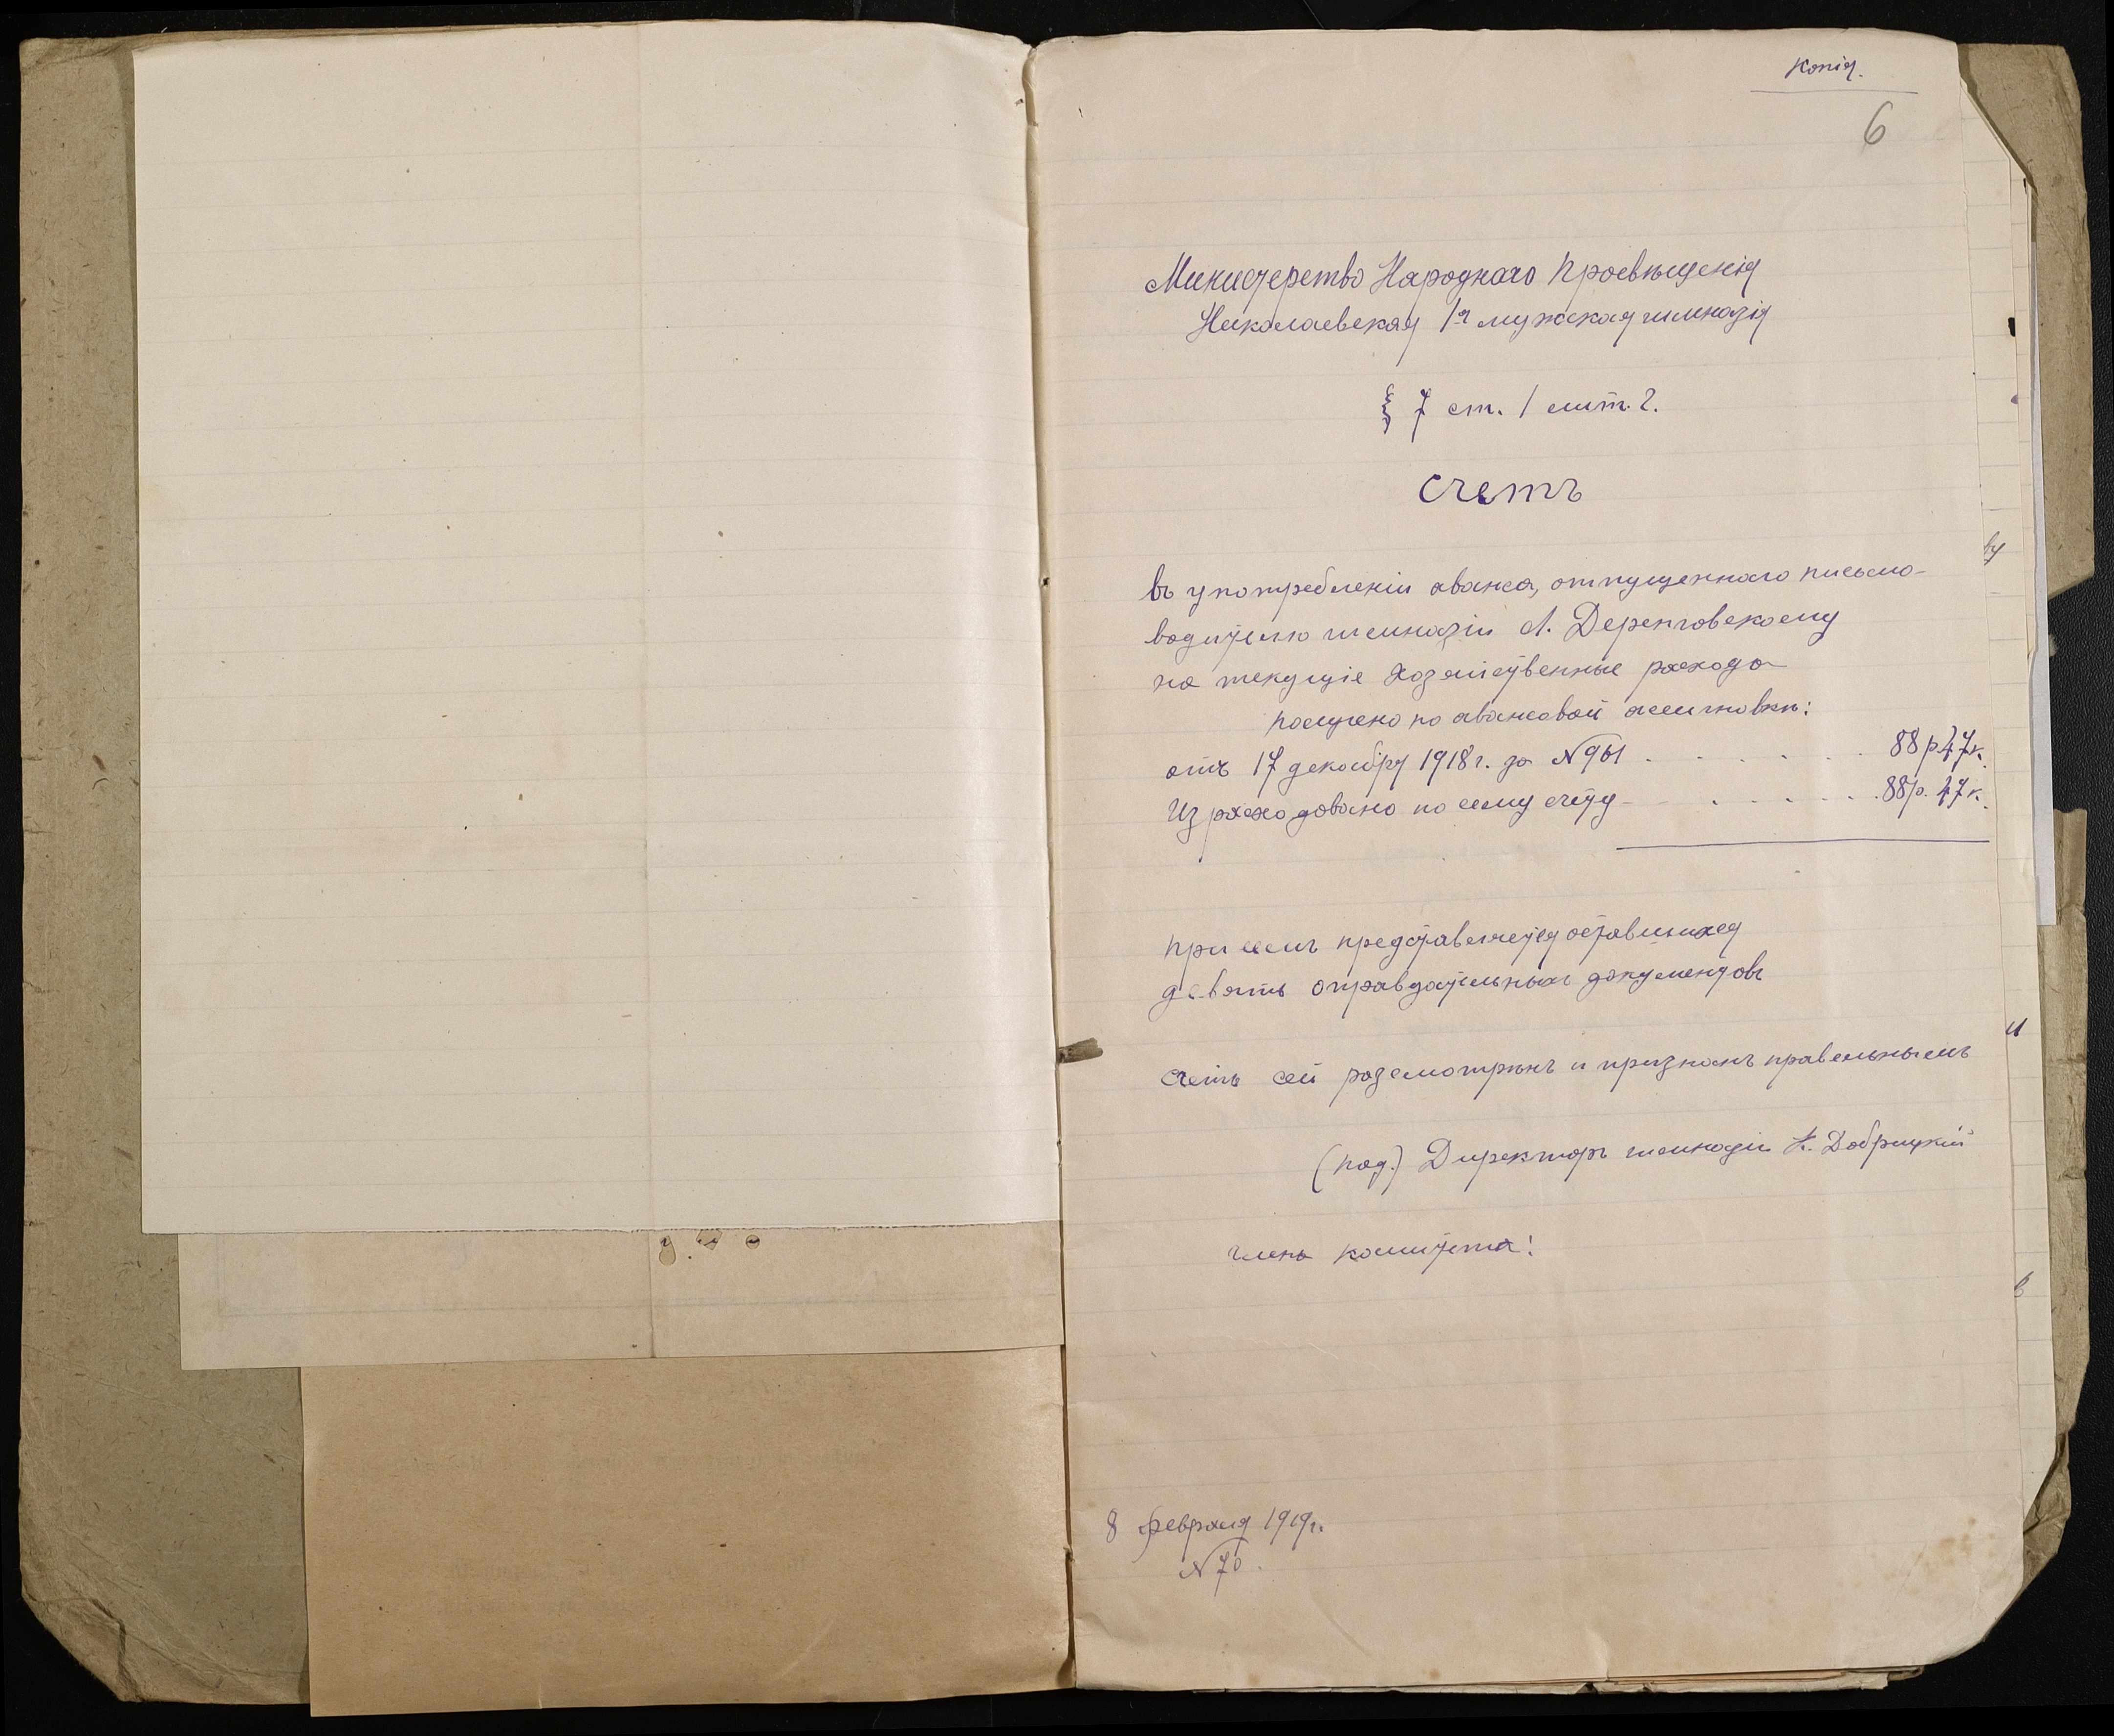 Копія.
6
Министерство Народнаго Просвѣщенія
Николаевская 1-я мужская гимназія
§ 7 ст. 1 лит. г.
Счетъ
въ употребленіи аванса, отпущеннаго письмо-
водителю гимназіи А. Деренговскому
на текущіе хозяйственные расхода
получено по авансовой ассигновкѣ:
отъ 17 декабря 1918 г. за № 961 . . . . . . 88 р 47 к.
Израсходовано по сему счету . . . . . . 88 р. 47 к.
При семъ представляется оставшихся
девять оправдательныхъ документовъ
Счетъ сей разсмотрѣнъ и признанъ правельнымъ
(под.) Директоръ гимназіи К. Добрицкій
члены комитета:
8 февраля 1919 г.
№ 70.